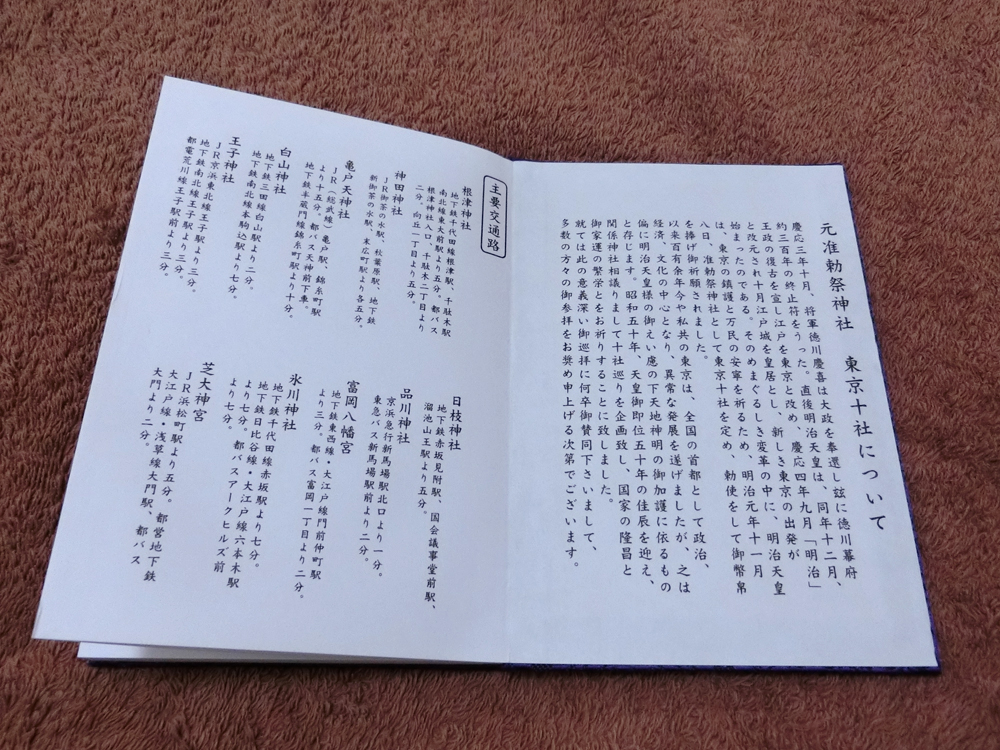 元准勅祭神社　東京十社について
慶応三年十月、将軍徳川慶喜は大政を奉還し玆に徳川幕府
約三百年の終止符をうった。直後明治天皇は、同年十二月、
王政の復古を宣し江戸を東京と改め、慶応四年九月「明治」
と改元され十月江戸城を皇居とし、新しき東京の出発が
始まったのである。そのめまぐるしき変革の中に、明治天皇
は、東京の鎮護と万民の安寧を祈るため、明治元年十一月
八日、准勅祭神社として東京十社を定め、勅使をして御幣帛
を捧げ御祈願されました。
以来百有余年今や私共の東京は、全国の首都として政治、
経済、文化の中心となり、異常な発展を遂げましたが、之は
偏に明治天皇様の御えい慮の下天地神明の御加護に依るもの
と存じます。昭和五十年、天皇御即位五十年の佳辰を迎え、
関係神社相議りまして十社巡りを企画致し、国家の隆昌と
御家運の繁栄とをお祈りすることに致しました。
就ては此の意義深い御巡拝に何卒御賛同下さいまして、
多数の方々の御参拝をお奨め申上げる次第でございます。
主要交通路
根津神社
地下鉄千代田線根津駅、千駄木駅
南北線東大前駅より五分。都バス
根津神社入口、千駄木二丁目より
二分。向丘一丁目より五分。
神田神社
JR御茶の水駅、秋葉原駅、地下鉄
新御茶の水駅、末広町駅より各五分。
亀戸天神社
JR（総武線）亀戸駅、錦糸町駅
より十五分。都バス天神前下車。
地下鉄半蔵門線錦糸町駅より十分。
白山神社
地下鉄三田線白山駅より二分。
地下鉄南北線本駒込駅より七分。
王子神社
JR京浜東北線王子駅より三分。
地下鉄南北線王子駅より三分。
都電荒川線王子駅前より三分。
日枝神社
地下鉄赤坂見附駅、国会議事堂前駅、
溜池山王駅より五分。
品川神社
京浜急行新馬場駅北口より一分。
東急バス新馬場駅前より二分。
富岡八幡宮
地下鉄東西線・大江戸線門前仲町駅
より三分。都バス富岡一丁目より二分。
氷川神社
地下鉄千代田線赤坂駅より七分。
地下鉄日比谷線・大江戸線六本木駅
より七分。都バスアークヒルズ前
より七分。
芝大神宮
JR浜松町駅より五分。都営地下鉄
大江戸線・浅草線大門駅、都バス
大門より二分。